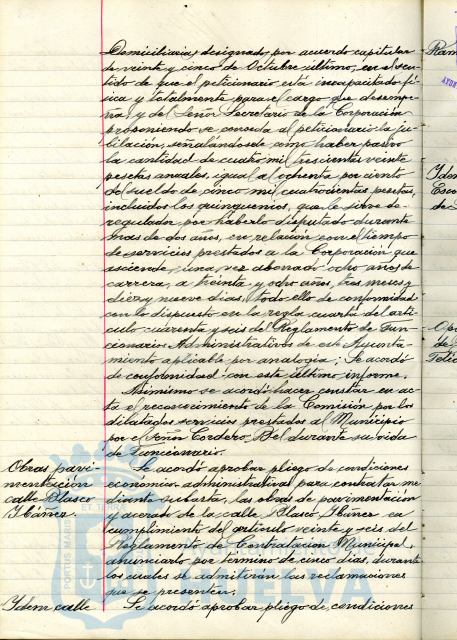 Domiciliaria, designado, por acuerdo capitular
de veinte y cinco de Octubre último, en el sen-
tido de que el peticionario está incapacitado fí-
sica y totalmente para el cargo que desempe-
ña, y del Señor Secretario de la Corporación
proponiendo se conceda al peticionario la ju-
bilación, señalándosele como haber pasivo
la cantidad de cuatro mil trescientas veinte
pesetas anuales, igual al ochenta por ciento
del sueldo de cinco mil cuatrocientas pesetas,
incluidos los quinquenios, que le sirve de
regulador por haberlo disfrutado durante
mas de dos años, en relación con el tiempo
de servicios prestados a la Corporación que
asciende, una vez abonado ocho años de
carrera, a treinta y ocho años, tres meses y
diez y nueve dias, todo ello de conformidad
con lo dispuesto en la regla cuarta del artí-
culo cuarenta y seis del Reglamento de Fun-
cionarios Administrativos de este Ayunta-
miento aplicable por analogia; Se acordó
de conformidad con este último informe.
Asimismo se acordó hacer constar en ac-
ta el reconocimiento de la Comisión por los
dilatados servicios prestados al Municipio
por el Señor Cordero Bel durante su vida
de Funcionario.
Obras pavi-
mentación
calle Blasco
Ibáñez.
Se acordó aprobar pliego de condiciones
económico-administrativas para contratar me-
diante subasta, las obras de pavimentación
y acerado de la calle Blasco Ibáñez en
cumplimiento del artículo veinte y seis del
Reglamento de Contratación Municipal,
anunciarlo por término de cinco dias, durante
los cuales se admitirán las reclamaciones
que se presenten.
Idem calle
Se acordó aprobar pliego de condiciones
Ram
Idem
Esco
de
Ope
de
PORTUS MARIS
HUELVA